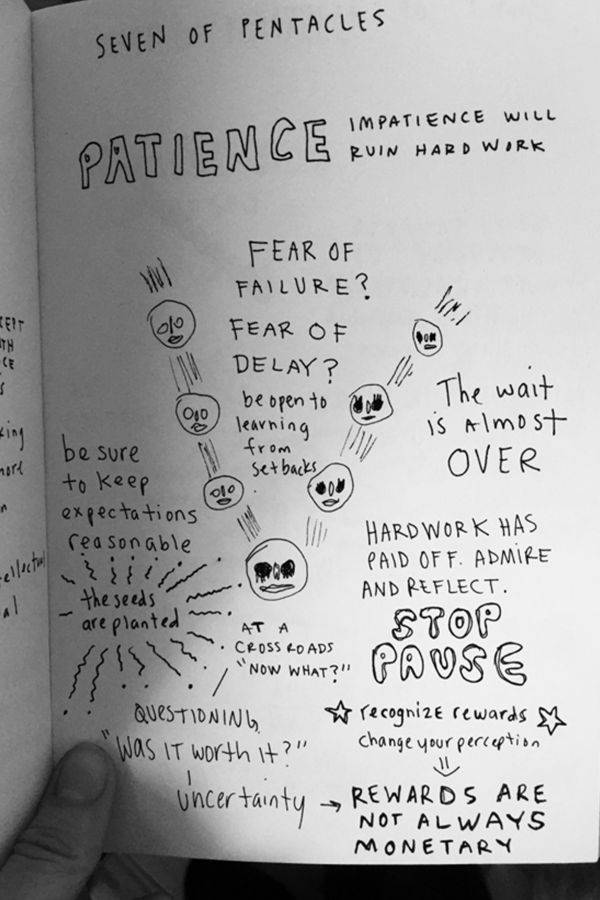 SEVEN OF PENTACLES
PATIENCE
IMPATIENCE WILL
RUIN HARD WORK
FEAR OF
FAILURE?
FEAR OF
DELAY?
be open to
learning
from
setbacks.
The wait
is Almost
OVER
be sure
to keep
expectations
reasonable
the seeds
are planted
HARDWORK HAS
PAID OFF. ADMIRE
AND REFLECT.
STOP
PAUSE
AT A
CROSSROADS
"NOW WHAT?"
QUESTIONING
"Was IT worth it?"
uncertainty →
☆ recognize rewards ☆
change your perception
REWARDS ARE
NOT ALWAYS
MONETARY